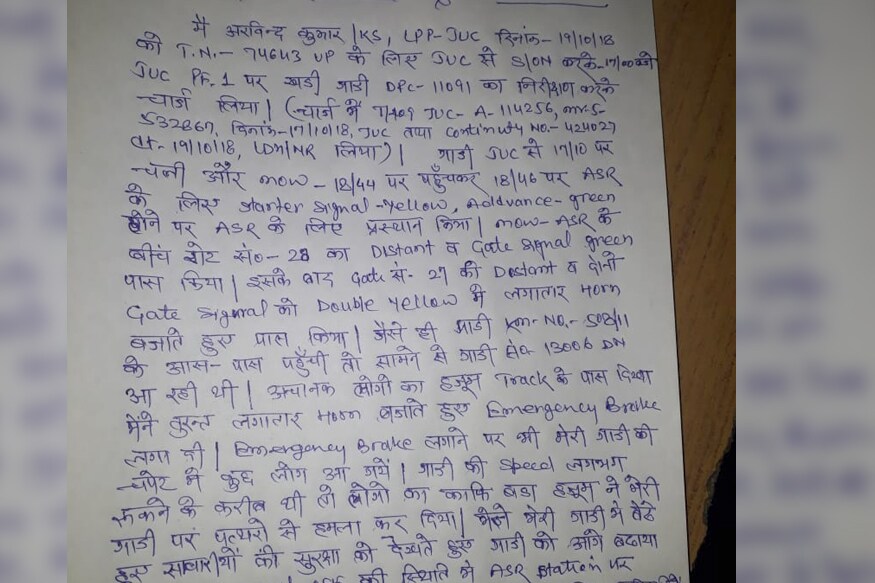 मैं अरविन्द कुमार / KS, LPP-JUC दिनांक- 19/10/18
को T.N.- 74643 UP के लिए JUC से S/ON करके- 17/00 को
JUC PF. 1 पर खडी गाडी DPC- 11091 का निरीक्षण करके
चार्ज लिया। (चार्ज में T/409 JUC- A- 114256,
532867, दिनांक- 17/10/18, JUC तथा Continuty NO.- 424027
dt- 19/10/18, LDH/NR लिया)। गाडी JUC से 17/10 पर
चली और mow - 18/44 पर पहुँचकर 18/46 पर ASR
के लिए Starter Signal -Yellow, Addvance- green
होने पर ASR के लिए प्रस्थान किया। mow- ASR के
बीच गेट सं०- 28 का Distant व Gate Signal green
पास किया। इसके बाद Gate सं- 27 की Distant व दोनो
Gate Signal को Double Yellow में लगातार Horn
बजाते हुए पास किया। जैसे ही गाडी Km- NO.- 508/11
के आस- पास पहुँची तो सामने से गाडी सं०- 13006 DN
आ रही थी। अचानक लोगो का हजूम Track के पास दिखा
मैंने तुरन्त लगातार Horn बजाते हुए Emergency Brake
लगा दी। Emergency Brake लगाने पर भी मेरी गाडी की
चपेट मे कुछ लोग आ गये। गाडी की Speed लगभग
रूकने के करीब थी तो लोगो का काफि बडा हजूम ने मेरी
गाडी पर पत्थरो से हमला कर दिया। मैंने मेरी गाडी मे बैठे
हुए सवारीयों की सुरक्षा को देखते हुए गाडी को आगे बढाया
की स्थिति मे ASR Station पर